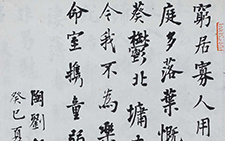 窮居寡人用
庭多落葉慨
葵鬱北墉
今我不為樂
命室携童弱
陶劉
癸巳夏